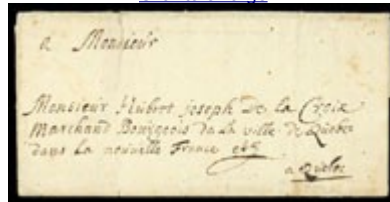 a Monsieur
Monsieur Hubert joseph De la Croix
Marchand Bourgeois da la ville de Quebec
dans la nouvelle France
a Quebec